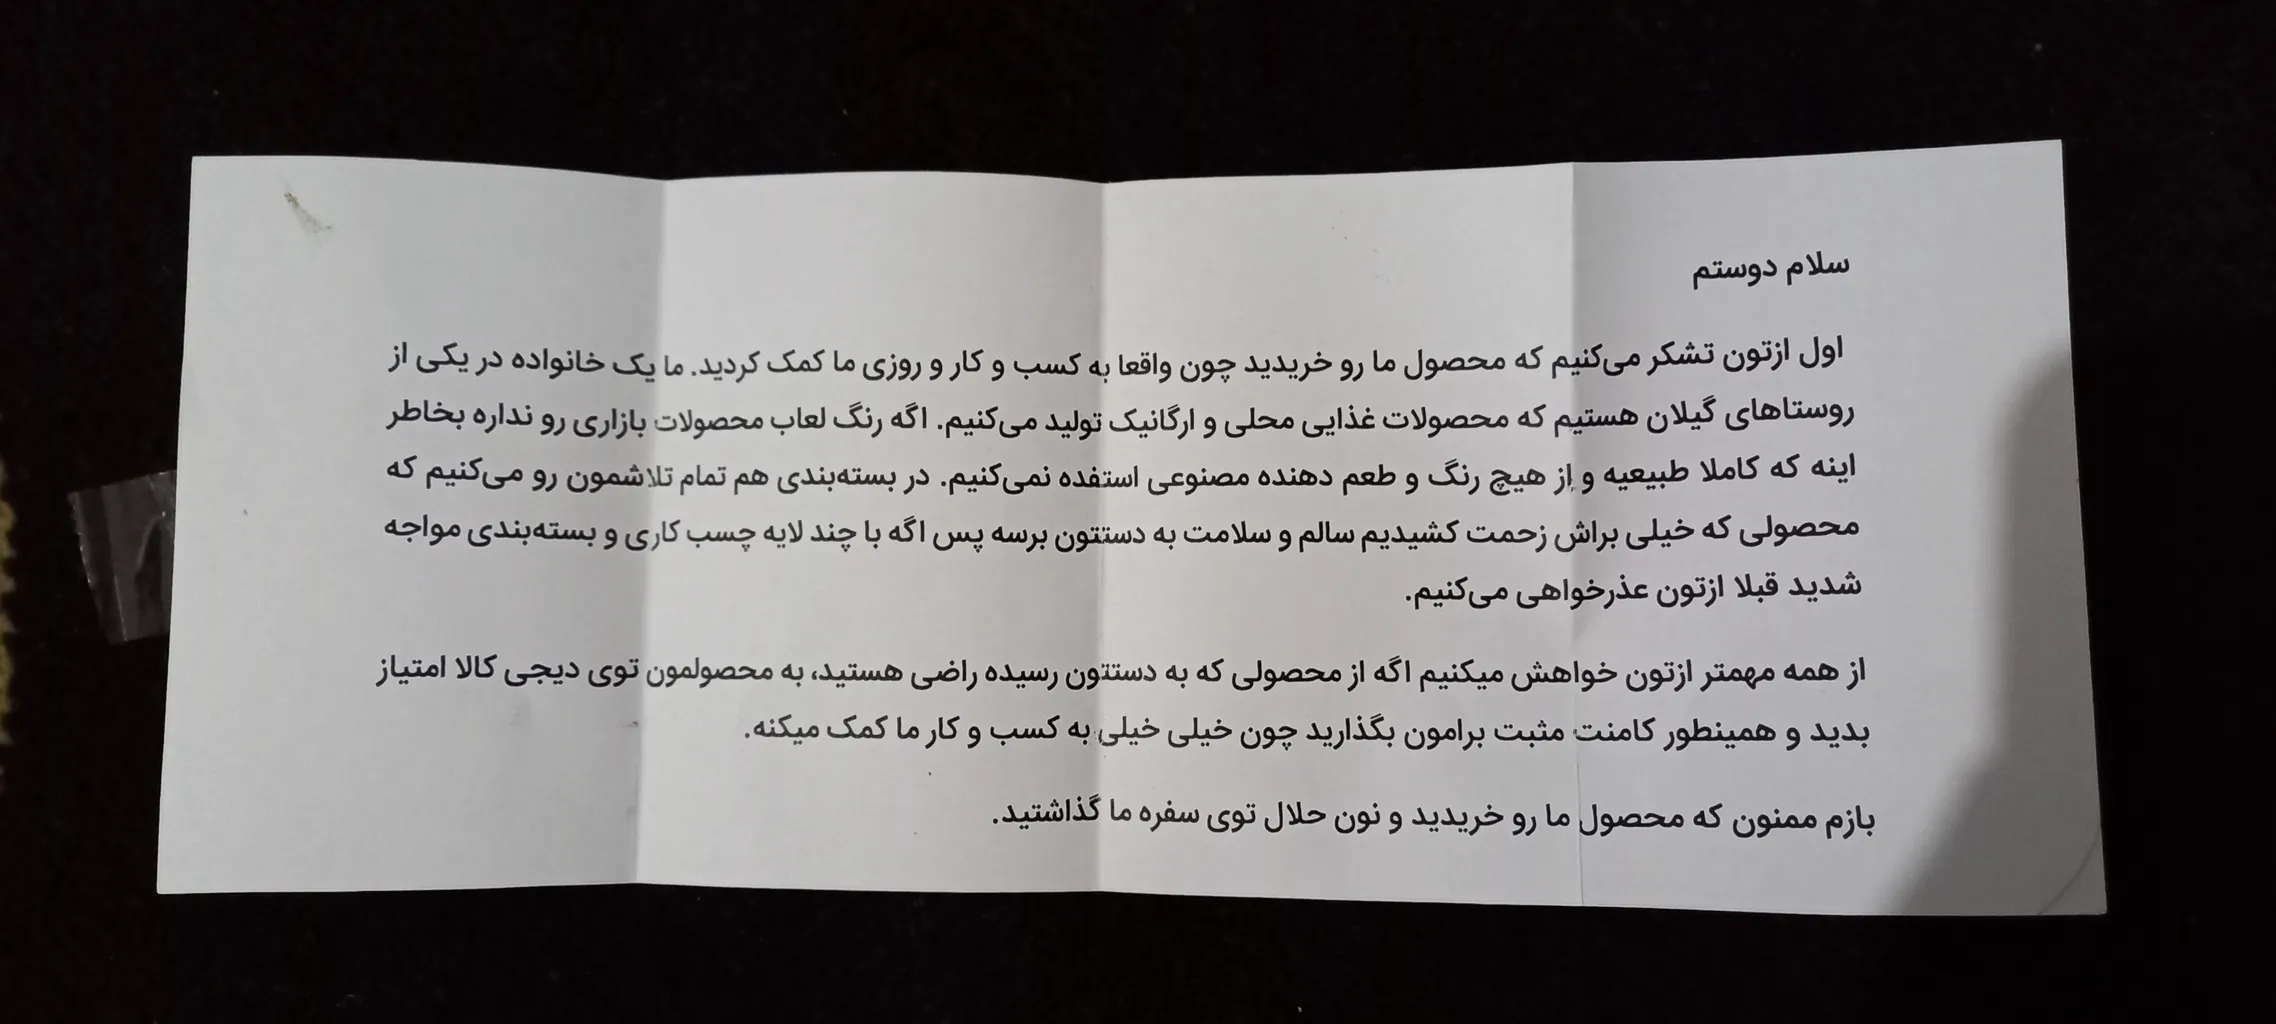 سلام دوستم
اول ازتون تشکر می‌کنیم که محصول ما رو خریدید چون واقعا به کسب و کار و روزی ما کمک کردید. ما یک خانواده در یکی از
روستاهای گیلان هستیم که محصولات غذایی محلی و ارگانیک تولید می‌کنیم. اگه رنگ لعاب محصولات بازاری رو نداره بخاطر
اینه که کاملا طبیعیه و از هیچ رنگ و طعم دهنده مصنوعی استفده نمی‌کنیم. در بسته‌بندی هم تمام تلاشمون رو می‌کنیم که
محصولی که خیلی براش زحمت کشیدیم سالم و سلامت به دستتون برسه پس اگه با چند لایه چسب کاری و بسته‌بندی مواجه
شدید قبلا ازتون عذرخواهی می‌کنیم.
از همه مهمتر ازتون خواهش میکنیم اگه از محصولی که به دستتون رسیده راضی هستید، به محصولمون توی دیجی کالا امتیاز
بدید و همینطور کامنت مثبت برامون بگذارید چون خیلی خیلی به کسب و کار ما کمک میکنه.
بازم ممنون که محصول ما رو خریدید و نون حلال توی سفره ما گذاشتید.